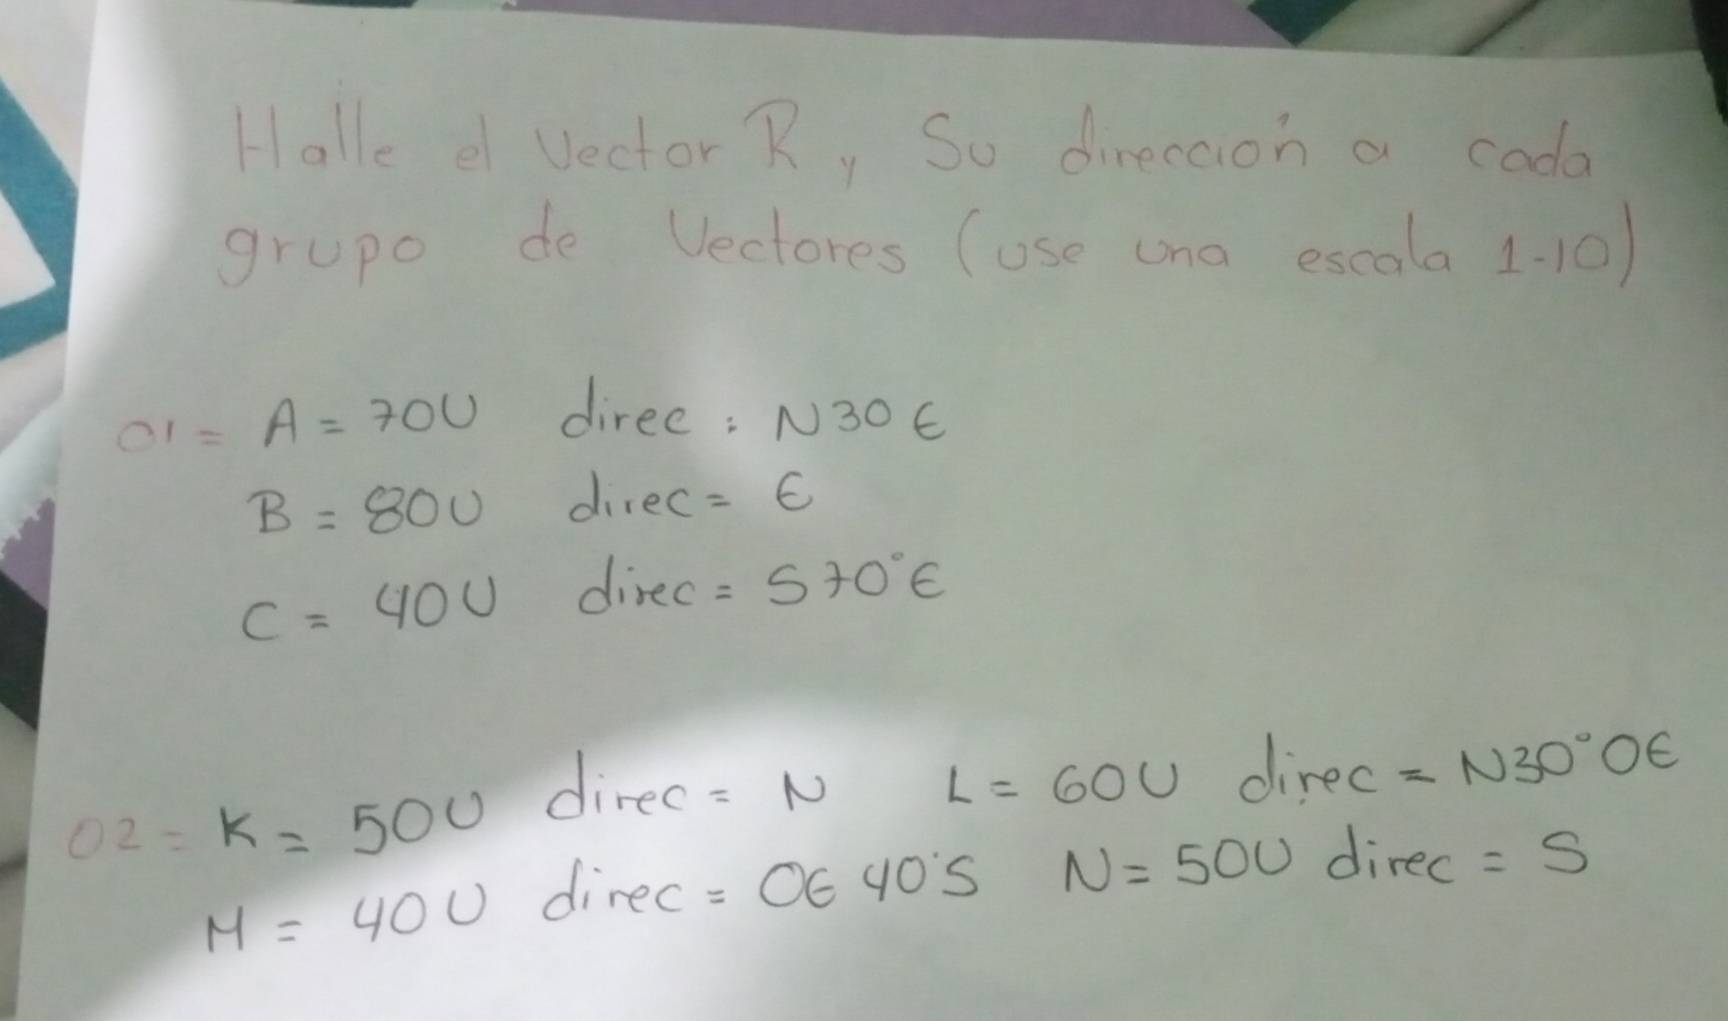 Halle el Vector R y Su dirección a cada
grupo de Vectores (use una escala 1-10)
01= A = 70U direc : N30 E
B = 80U direc = E
C = 40U direc = S70°E
02= K = 50U direc = N L = 60U direc = N30°OE
M = 40U direc = OE 40°S N = 50U direc = S